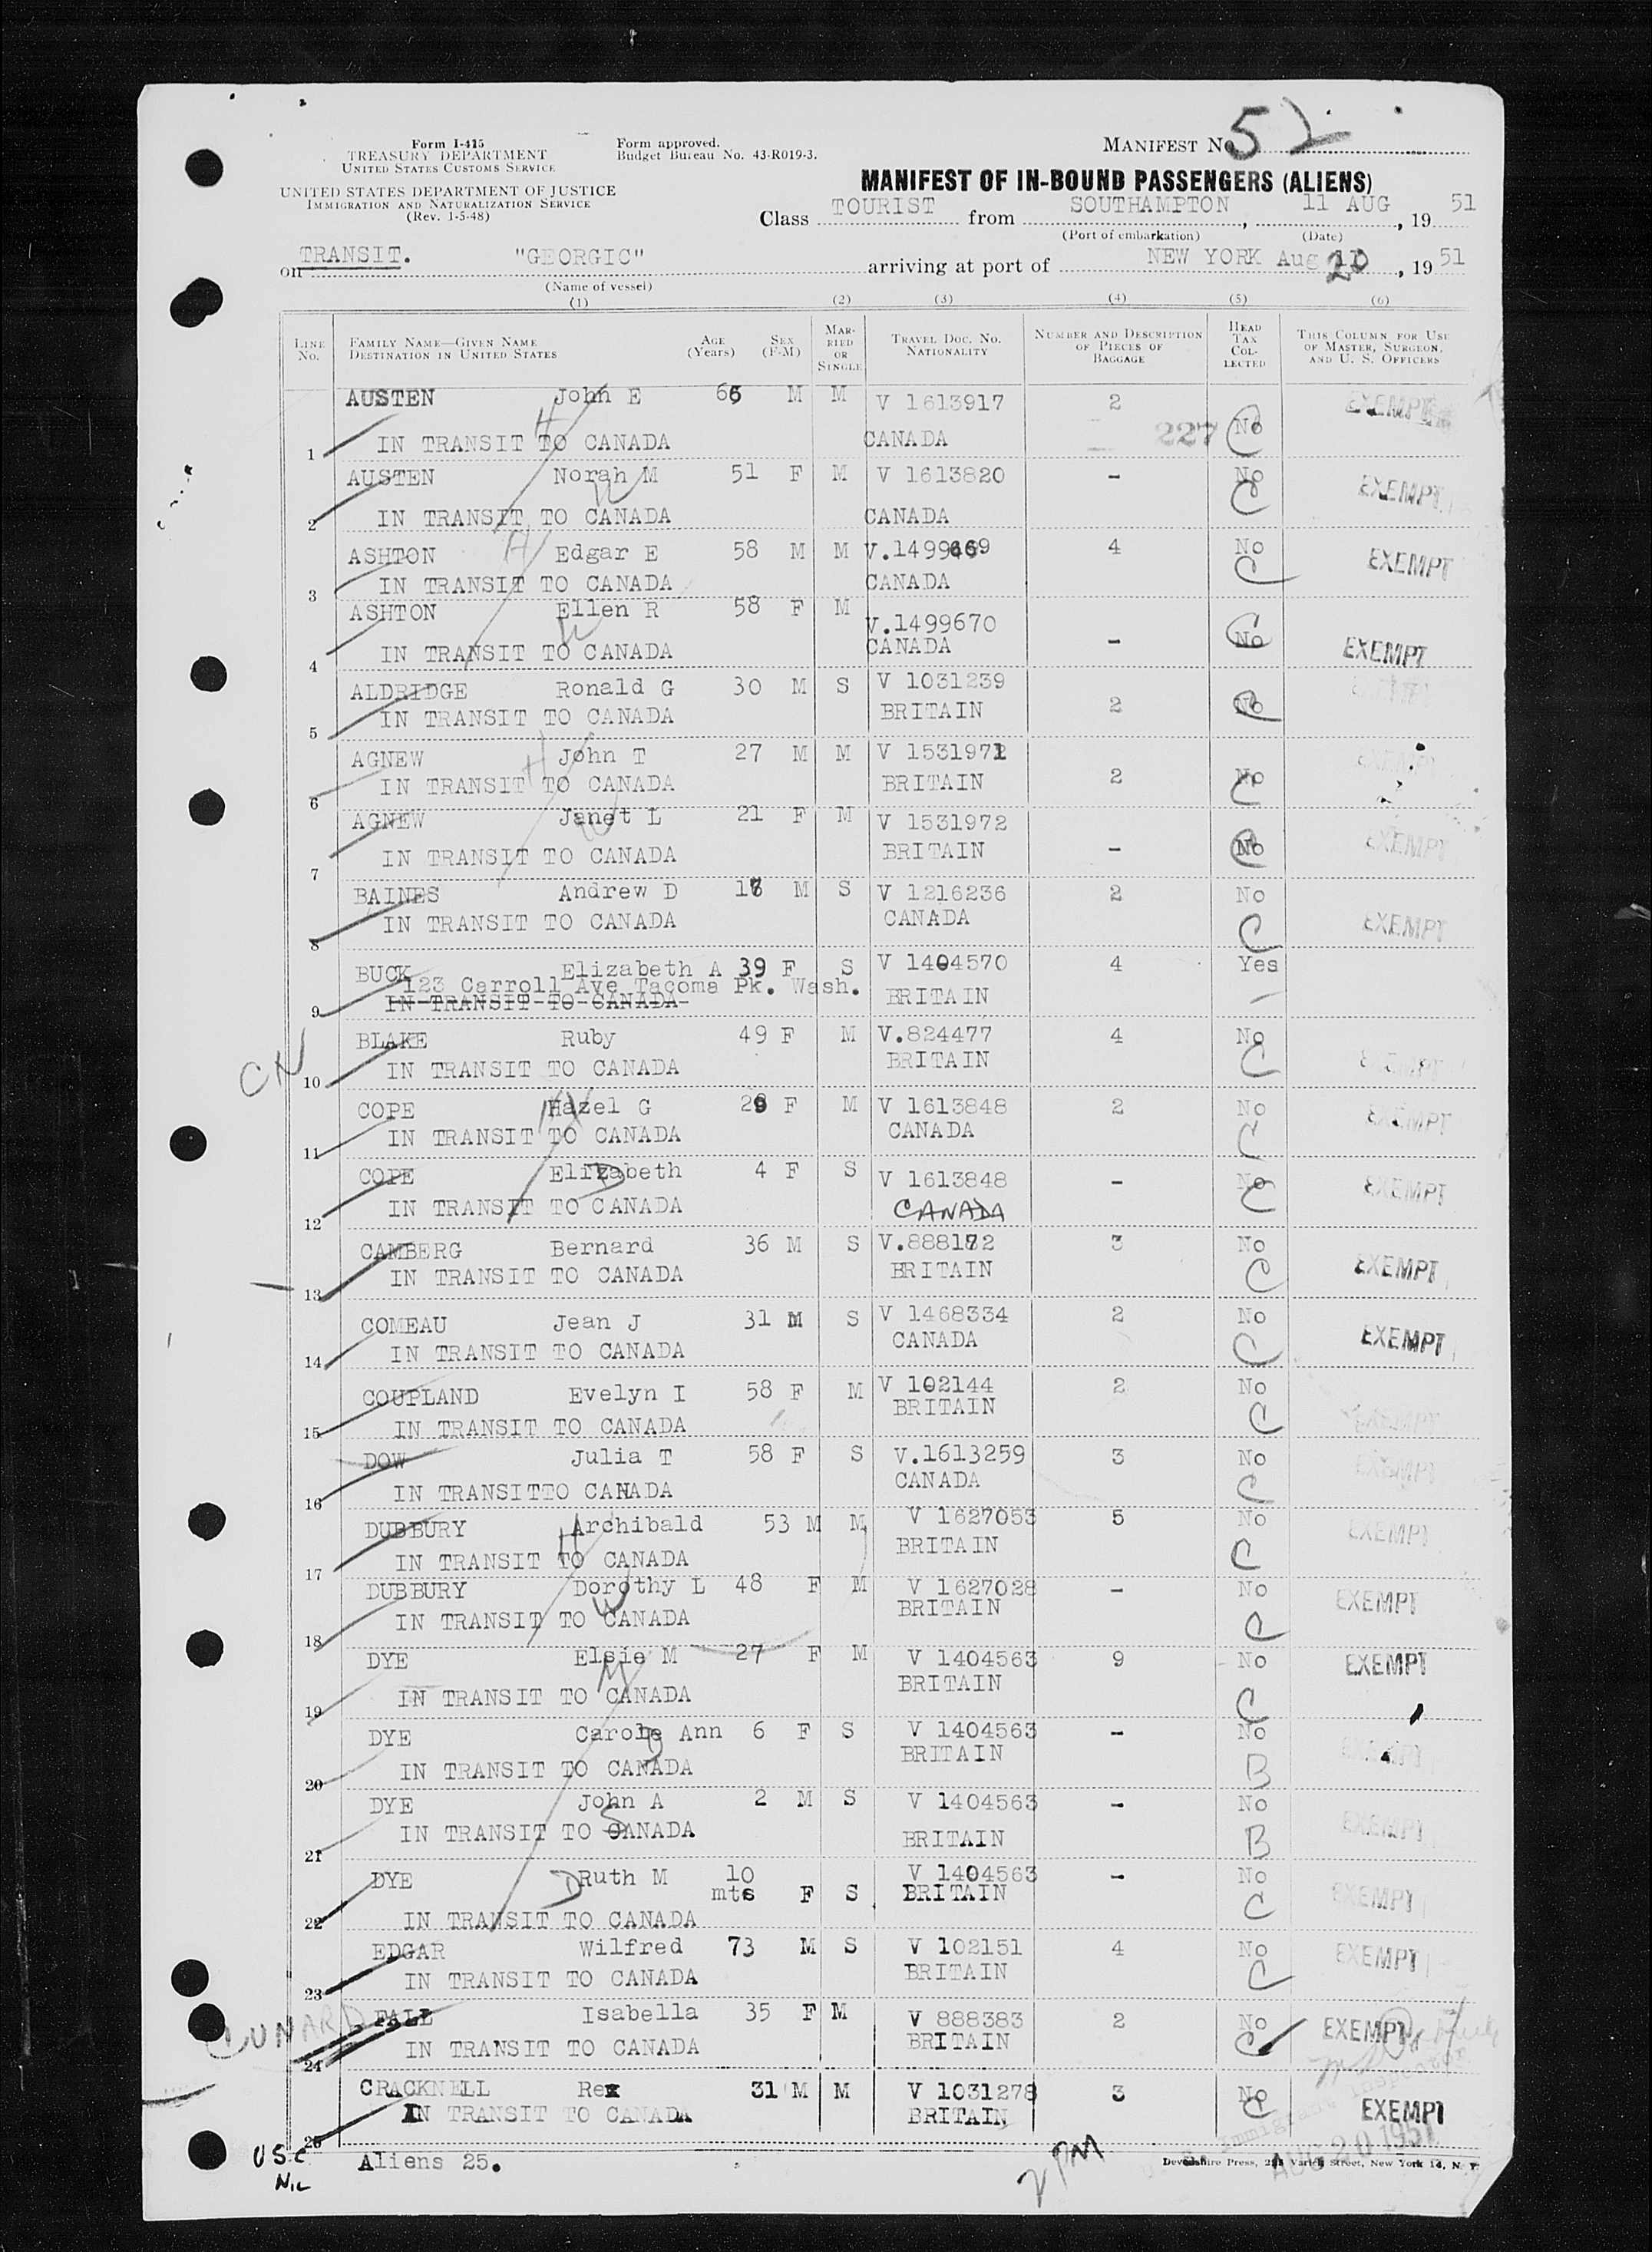 Form I-415
TREASURY DEPARTMENT
UNITED STATES CUSTOMS SERVICE
UNITED STATES DEPARTMENT OF JUSTICE
IMMIGRATION AND NATURALIZATION SERVICE
(Rev. 1-5-48)
Form approved.
Budget Bureau No. 43-R019-3.
MANIFEST No. 52
MANIFEST OF IN-BOUND PASSENGERS (ALIENS)
Class TOURIST from SOUTHAMPTON, 11 AUG, 1951
(Port of embarkation) (Date)
TRANSIT.
on "GEORGIC" arriving at port of NEW YORK Aug 20, 1951
(Name of vessel)
(1) (2) (3) (4) (5) (6)
LINE No.
FAMILY NAME—GIVEN NAME
DESTINATION IN UNITED STATES
AGE (Years)
SEX (F-M)
MARRIED OR SINGLE
TRAVEL DOC. NO.
NATIONALITY
NUMBER AND DESCRIPTION OF PIECES OF BAGGAGE
HEAD TAX COLLECTED
THIS COLUMN FOR USE OF MASTER, SURGEON, AND U. S. OFFICERS
AUSTEN John E 66 M M V 1613917 2 EXEMPT
227 No C
1 IN TRANSIT TO CANADA CANADA
AUSTEN Norah M 51 F M V 1613820 - No C EXEMPT
2 IN TRANSIT TO CANADA CANADA
ASHTON Edgar E 58 M M V.1499669 4 No C EXEMPT
3 IN TRANSIT TO CANADA CANADA
ASHTON Ellen R 58 F M V.1499670 - No C EXEMPT
4 IN TRANSIT TO CANADA CANADA
ALDRIDGE Ronald G 30 M S V 1031239 2 No C
5 IN TRANSIT TO CANADA BRITAIN
AGNEW John T 27 M M V 1531971 2 No C EXEMPT
6 IN TRANSIT TO CANADA BRITAIN
AGNEW Janet L 21 F M V 1531972 - No C EXEMPT
7 IN TRANSIT TO CANADA BRITAIN
BAINES Andrew D M S V 1216236 2 No C EXEMPT
8 IN TRANSIT TO CANADA CANADA
BUCK Elizabeth A 39 F S V 1404570 4 Yes
123 Carroll Ave Tacoma Pk. Wash.
9 IN TRANSIT TO CANADA BRITAIN
BLAKE Ruby 49 F M V.824477 4 No C EXEMPT
CN
10 IN TRANSIT TO CANADA BRITAIN
COPE Hazel G 29 F M V 1613848 2 No C EXEMPT
11 IN TRANSIT TO CANADA CANADA
COPE Elizabeth 4 F S V 1613848 - No C EXEMPT
12 IN TRANSIT TO CANADA CANADA
CAMBERG Bernard 36 M S 3 No C EXEMPT
13 IN TRANSIT TO CANADA BRITAIN
COMEAU Jean J 31 M S V 1468334 2 No C EXEMPT
14 IN TRANSIT TO CANADA CANADA
COUPLAND Evelyn I 58 F M V 102144 2 No C EXEMPT
15 IN TRANSIT TO CANADA BRITAIN
DOW Julia T 58 F S V.1613259 3 No C EXEMPT
16 IN TRANSITTO CANADA CANADA
DUBBURY Archibald 53 M M V 1627053 5 No C EXEMPT
17 IN TRANSIT TO CANADA BRITAIN
DUBBURY Dorothy L 48 F M V 1627028 - No C EXEMPT
18 IN TRANSIT TO CANADA BRITAIN
DYE Elsie M 27 F M V 1404563 9 No C EXEMPT
19 IN TRANSIT TO CANADA BRITAIN
DYE Carole Ann 6 F S V 1404563 - No B EXEMPT
20 IN TRANSIT TO CANADA BRITAIN
DYE John A 2 M S V 1404563 - No B EXEMPT
21 IN TRANSIT TO CANADA BRITAIN
DYE Ruth M 10 mts F S V 1404563 - No C EXEMPT
22 IN TRANSIT TO CANADA BRITAIN
EDGAR Wilfred 73 M S V 102151 4 No C EXEMPT
23 IN TRANSIT TO CANADA BRITAIN
CUNARD FALL Isabella 35 F M V 888383 2 No C EXEMPT
24 IN TRANSIT TO CANADA BRITAIN
CRACKNELL Rex 31 M M V 1031278 3 No C EXEMPT
25 IN TRANSIT TO CANADA BRITAIN
U.S.C. NIL
Aliens 25.
2 PM
AUG 20 1951
Devonshire Press, Varick Street, New York 14, N. Y.